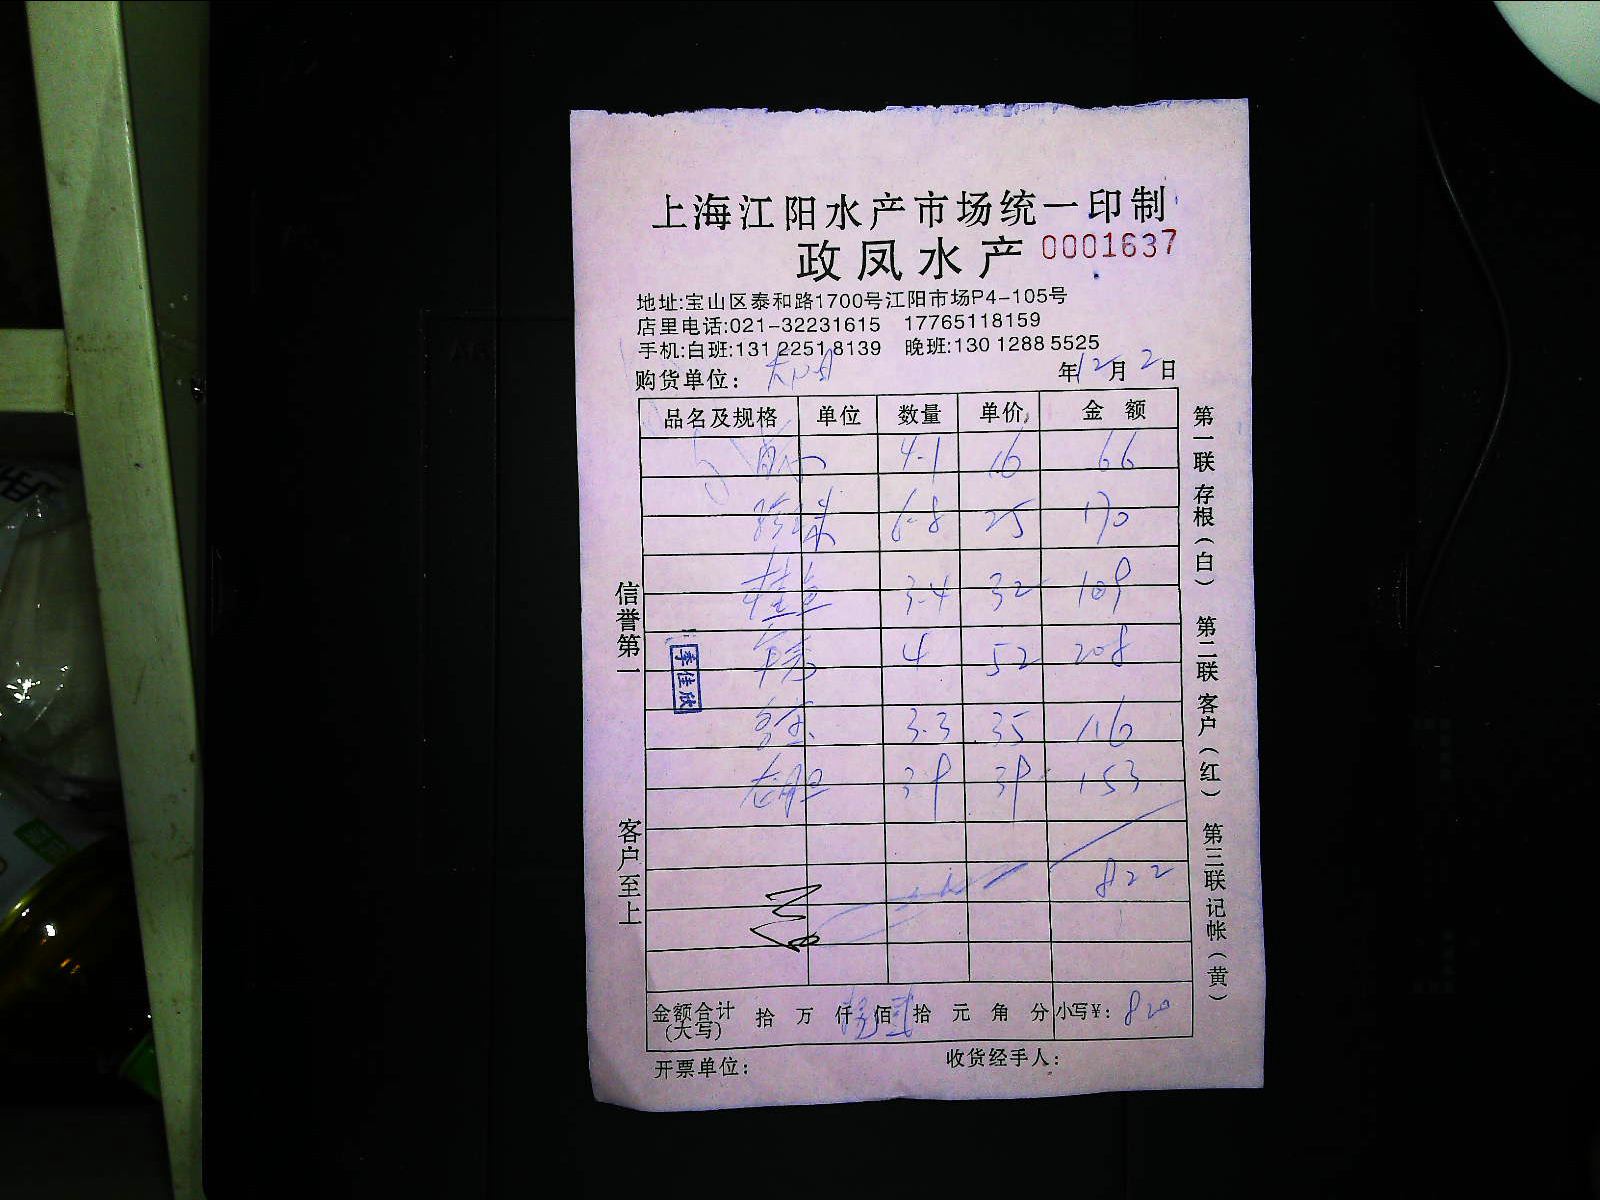 上海江阳水产市场统一印制
政凤水产 0001637
地址:宝山区泰和路1700号江阳市场P4-105号
店里电话:021-32231615 17765118159
手机:白班:131 2251 8139 晚班:130 1288 5525
购货单位: 年12月2日
品名及规格 单位 数量 单价 金额
4.1 16 66
6.8 25 170
桂鱼 3.4 32 109
4 52 208
3.3 35 116
3.9 39 153
822
金额合计(大写) 拾 万 仟 捌 佰 贰 拾 元 角 分 小写¥: 820
开票单位: 收货经手人:
信誉第一
客户至上
季佳欣
第一联 存根(白) 第二联 客户(红) 第三联 记帐(黄)